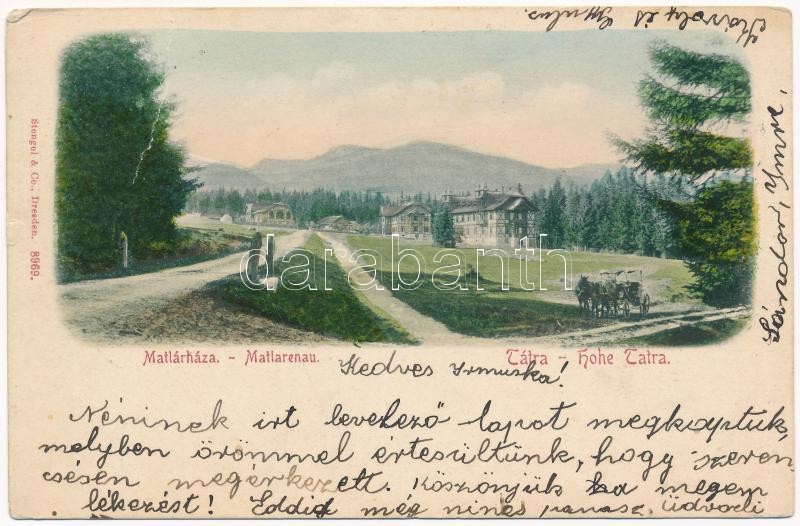 Károly és Gyulus.
Stengel & Co., Dresden. 8969.
darabanth.com
Matlárháza. - Matlarenau.
Tátra - Hohe Tatra.
Kedves Irmuska!
Néninek irt levelező lapot megkaptuk,
melyben örömmel értesültünk, hogy szeren-
csésen megérkezett. Köszönjük a megem
lékezést! Eddig még nincs panasz. Üdvözli
Sándor, Imre,